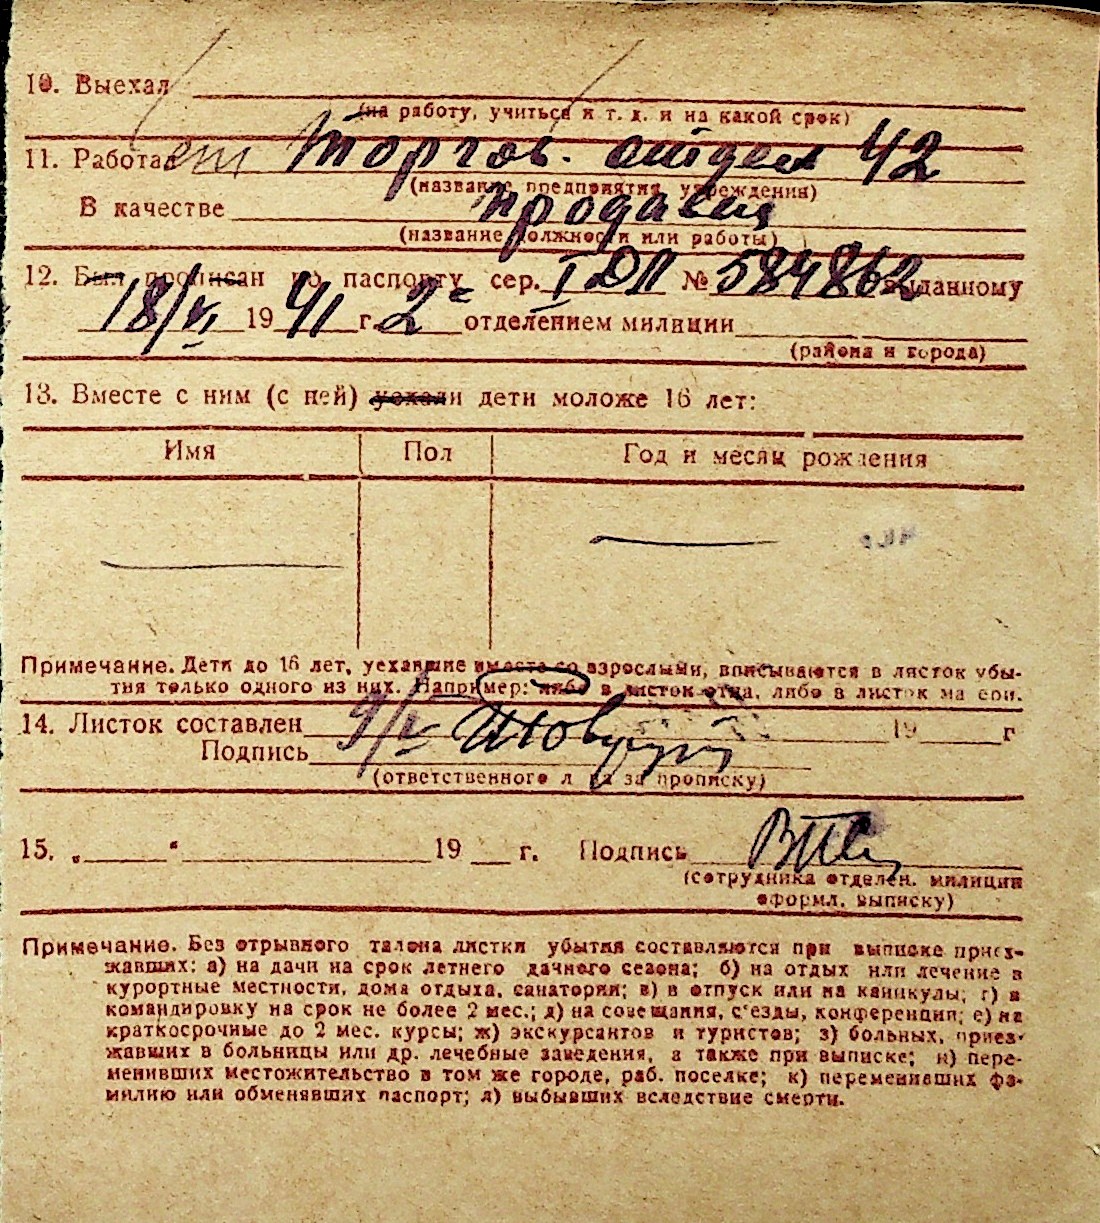 10. Выехал
(на работу, учиться и т. д. и на какой срок)
11. Работает Торгов. отдел 42
(название предприятия, учреждения)
В качестве продавец
(название должности или работы)
12. Был прописан по паспорту сер. I ДЛ № 584862 выданному
18/VI 1941 г. 2 отделением милиции
(района и города)
13. Вместе с ним (с ней) уехали дети моложе 16 лет:
Имя Пол Год и месяц рождения
Примечание. Дети до 16 лет, уехавшие вместе со взрослыми, вписываются в листок убы-
тия только одного из них. Например: либо в листок отца, либо в листок матери.
14. Листок составлен 19 г
Подпись
(ответственного лица за прописку)
15. „ “ 19 г. Подпись
(сотрудника отделен. милиции
оформл. выписку)
Примечание. Без отрывного талона листки убытия составляются при выписке приез-
жавших: а) на дачи на срок летнего дачного сезона; б) на отдых или лечение в
курортные местности, дома отдыха, санатории; в) в отпуск или на каникулы; г) в
командировку на срок не более 2 мес.; д) на совещания, с'езды, конференции; е) на
краткосрочные до 2 мес. курсы; ж) экскурсантов и туристов; з) больных, приез-
жавших в больницы или др. лечебные заведения, а также при выписке; и) пере-
менивших местожительство в том же городе, раб. поселке; к) переменивших фа-
милию или обменявших паспорт; л) выбывших вследствие смерти.